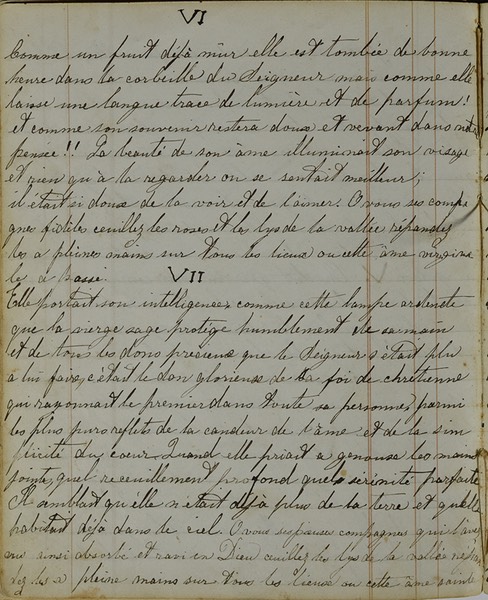 VI
Comme un fruit déjà mûr elle est tombée de bonne
heure dans la corbeille du Seigneur mais comme elle
laisse une langue trace de lumière et de parfum!
et comme son souvenir restera doux et vevant dans notre
pensée!! La beauté de son âme illuminait son visage
et rien qu'à la regarder on se sentait meilleur;
il était si doux de la voir et de l'aimer. O vous ses compa
gnes fidèles ceuillez les roses et les lys de la vallée répandez
les a pleines mains sur tous les lieux ou cette âme virgina
le a passé.
VII
Elle portait son intelligence comme cette lampe ardente
que la vierge sage protège humblement de sa main
et de tous les dons precieux que le Seigneur s'était plu
a lui faire, c'était le don glorieux de la foi de chrétienne
qui rayonnait le premier dans toute sa personne, parmi
les plus purs reflets de la candeur de l'âme et de la sim
plicité du coeur. Quand elle priait a genoux les mains
jointes, quel receuillement profond quelle sérénité parfaite
Il semblait qu'elle n'était déjà plus de la terre et qu'elle
habitait déjà dans le ciel. O vous ses pieuses compagnes qui l'avez
vu ainsi absorbé et ravi en Dieu ceuillez les lys de la vallée
les a pleine mains sur tous les lieux ou cette âme sainte